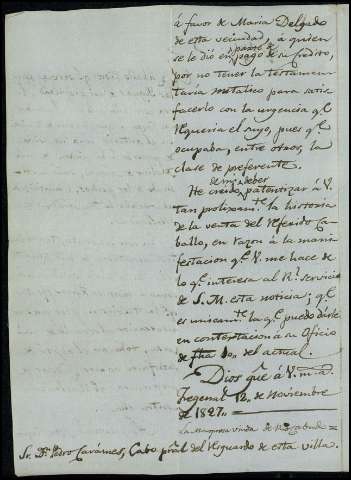 á favor de Maria Delgado
de esta vecindad; á quien
se le dió en parte de pago de su Credito,
por no tener la testamen-
taria metalico para satis-
facerlo con la urgencia q.e
requeria el suyo, pues q.e
ocupaba, entre otros, la
clase de preferente.
He creido de mi deber patentizar á V.
tan prolixam.te la historia
de la venta del referido Ca-
ballo, en razon á la mani-
festacion q.e V. me hace de
lo q.e interesa al R.l servicio
de S. M. esta noticia; q.e
es unicam.te la q.e puedo darle
en contestacion á su Oficio
de fha 10,, del actual.
Dios gue á V. m.s a.s
Fregenal 12,, de Noviembre
de 1827.
La Marquesa viuda de
Sr. D.n Pedro Cavármes, Cabo pral del Resguardo de esta villa.